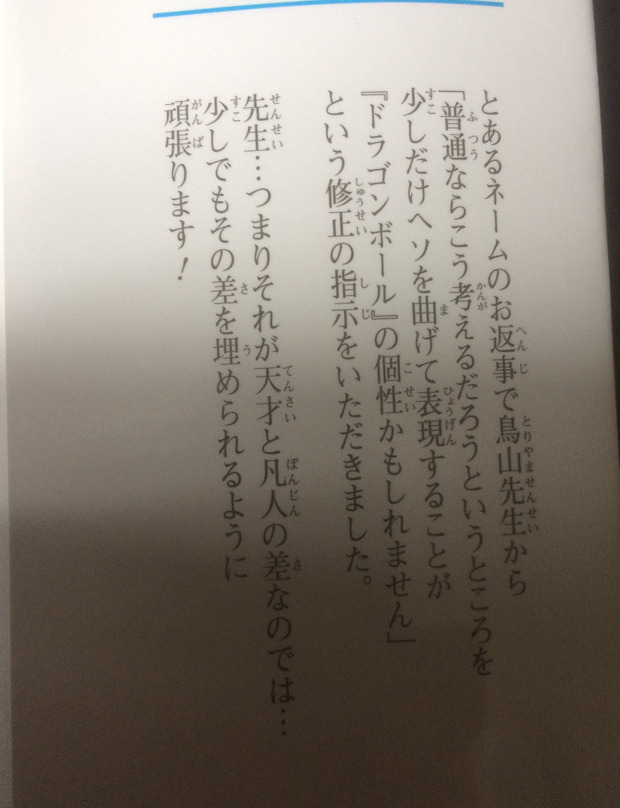 とあるネームのお返事で鳥山先生から
「普通ならこう考えるだろうというところを
少しだけヘソを曲げて表現することが
『ドラゴンボール』の個性かもしれません」
という修正の指示をいただきました。
先生…つまりそれが天才と凡人の差なのでは…
少しでもその差を埋められるように
頑張ります！